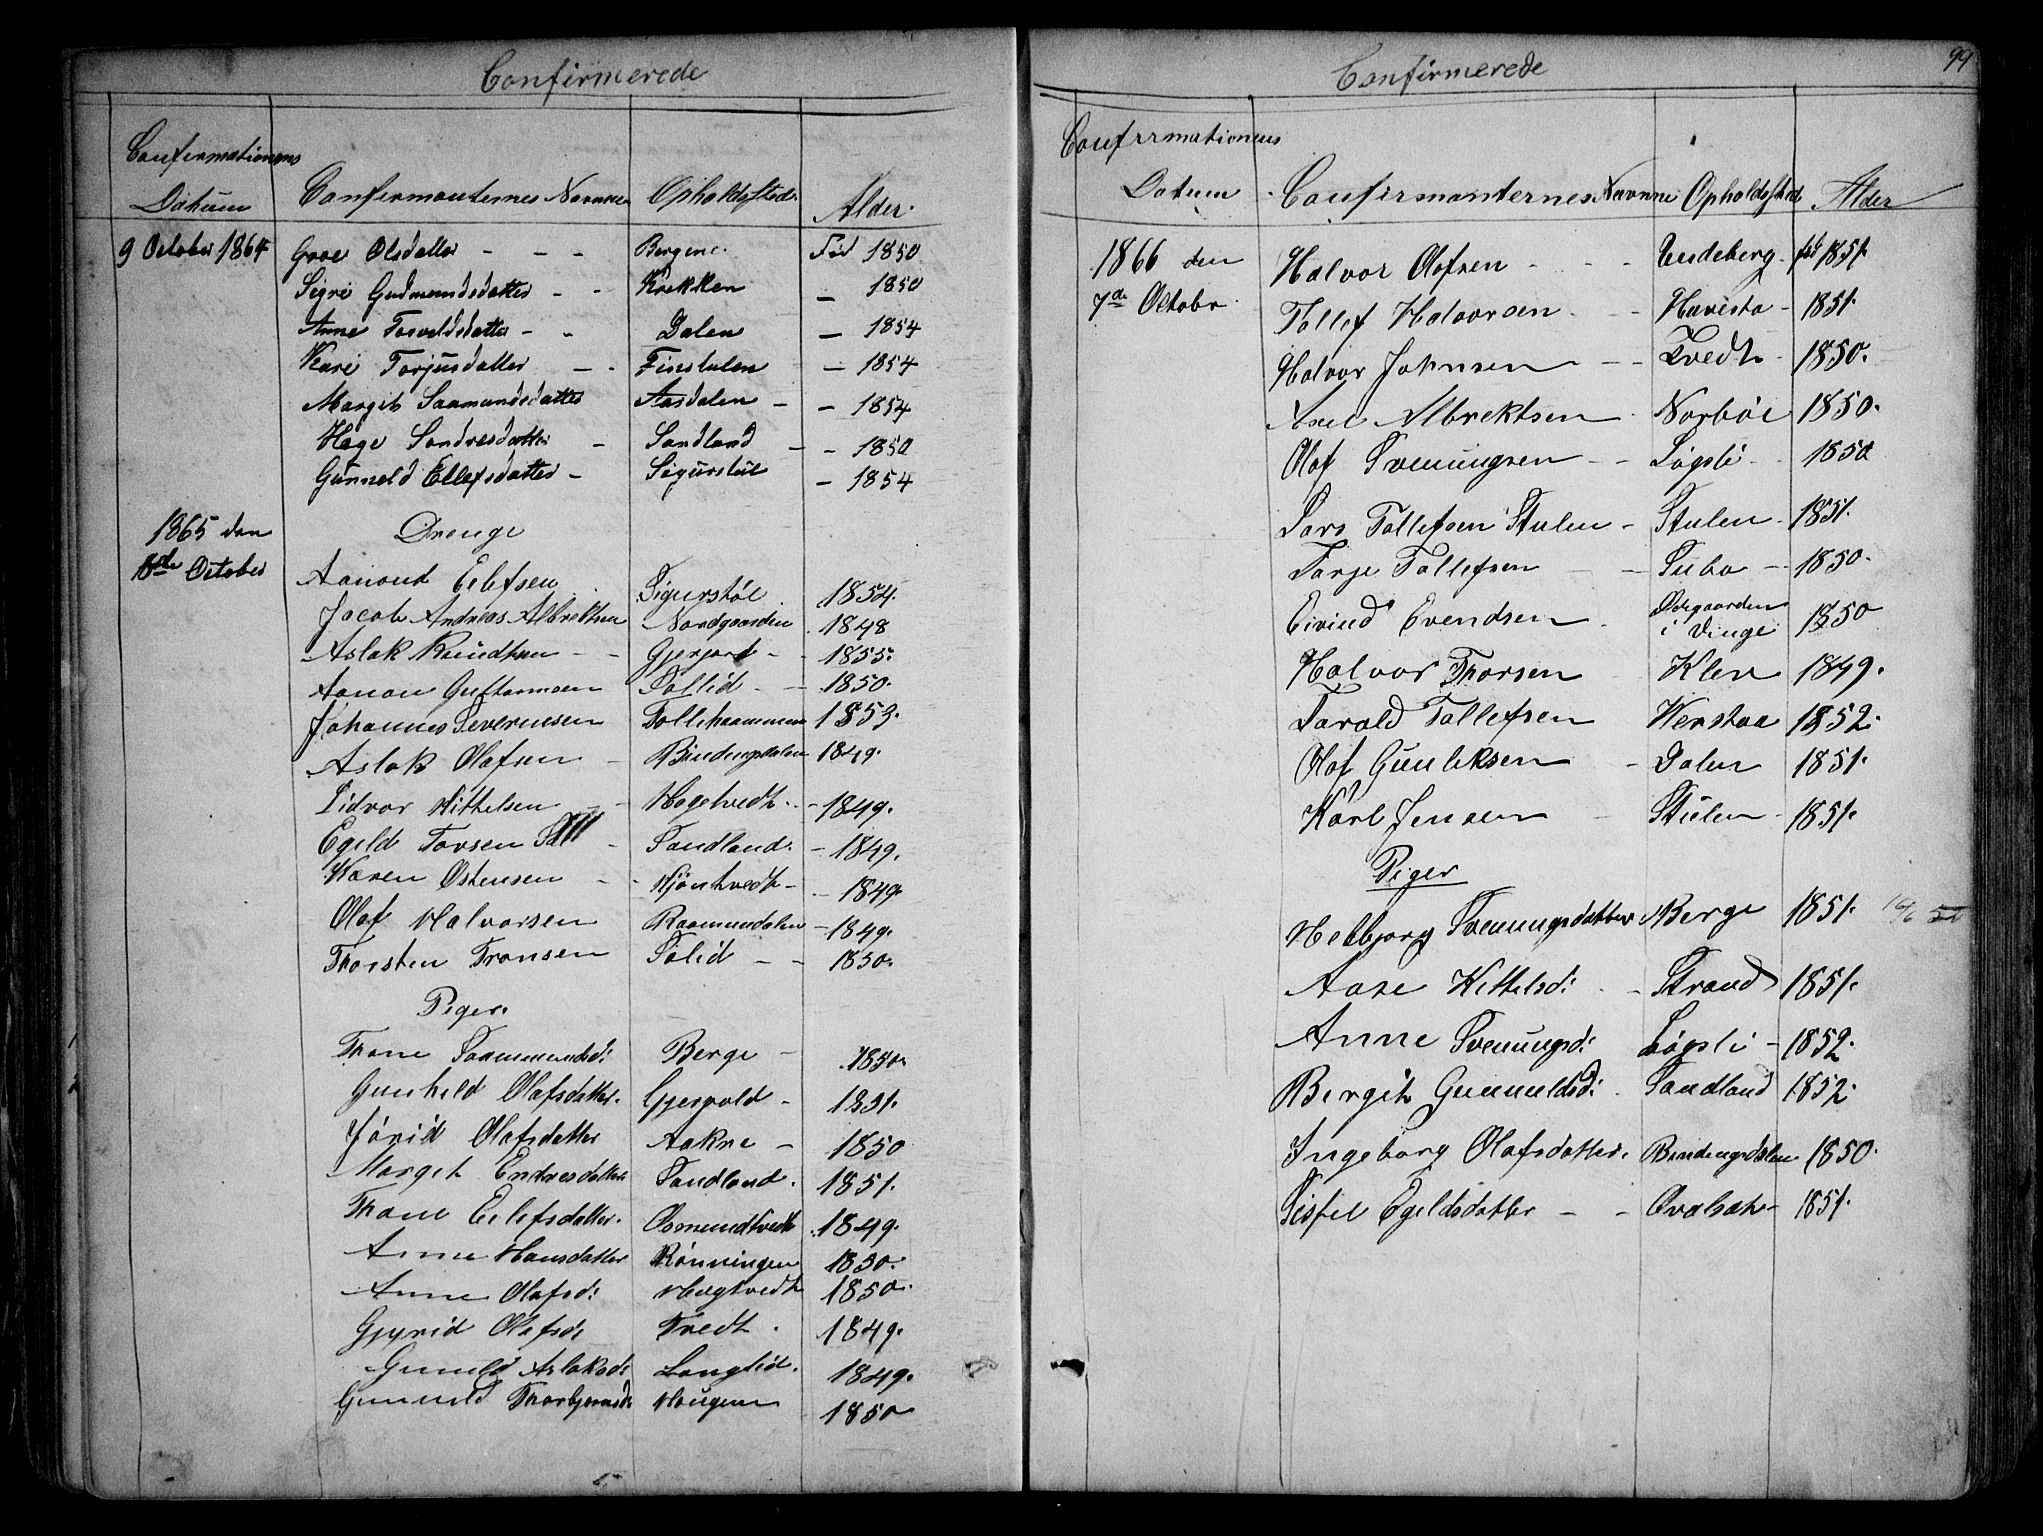 Confirmerede
Confirmationens
Datum
Confirmanternes Navnne
Opholdssted
Alder.
9 October 1864 Groe Olsdatter - - - Bergene. Fød 1850
Sigri Gudmundsdatter - - Krekken - 1850
Anne Torvaldsdatter - - Dalen - 1854
Kari Torjusdatter - - Finstulen - 1854
Margit Saamundsdatter Aasdalen - - 1854
Hage Sondresdatter - Sandland - - 1850
Gunneld Ellefsdatter - Sigurstul - 1854
1865 den
8de October
Drenge
Aanond Eilefsen Sigurstøl 1854.
Jacob Andreas Albrektsen Nordgaarden 1848
Aslak Knudtsen - - Gjerjord - 1855.
Aanon Guttormsen Sollid - - 1850.
Johannes Severinsen Tollehaammeren 1853.
Aslak Olafsen - Bindingsdalen 1849.
Lidvor Kittelsen - - Hogetvedt - - 1849.
Egild Torsen - Sandland. - 1849.
Karen Østensen - - Kjøntvedt - - 1849.
Olaf Halvorsen Raamundalen - 1849.
Thorsten Tronsen Solid - - 1850.
Piger.
Thone Saammundsd: Berge - 1850.
Gunhild Olafsdatter. Gjesvold - 1851.
Jørid Olafsdatter Aakre - 1850
Margit Endresdatter Sandland. 1851.
Thone Eilefsdatter. Osmundtvedt 1849.
Anne Hansdatter Rønningen 1850.
Anne Olafsd: Høgtvedt 1850.
Gjyrid Olafsd: Tvedt. 1849.
Gunild Aslaksd: Langlid. 1849.
Gunnild Thorbjørnsd: Haugen 1850
Confirmerede
99
Confirmationens
Datum
Confirmanternes Navnne
Opholdssted
Alder
1866 den
7de Octobr.
Halvor Olafsen - - - Lindeberg - fød 1851.
Tollef Halvorsen - - Havesta - 1851.
Halvor Johnsen - - Tvedt - 1850.
Axel Albrektsen - Norbøe 1850.
Olaf Svenungsen - - Løgsli - 1850
Lars Tollefsen Stulen - Stulen - 1851.
Tarje Tollefsen - - Subo - 1850.
Eivind Evendsen - Ødegaarden i Vinge 1850
Halvor Thorsen - Klev 1849.
Torald Tollefsen Verstaa 1852.
Olaf Gunleksen - Dalen 1851.
Karl Jensen - Stulen - 1851.
Piger
Helbjorg Svenungsdatter Berge 1851.
Aase Kittelsd: - - Strand 1851.
Anne Svenungsd: Løgsli - 1852.
Bergit Gunnuldsd: - Sandland 1852.
Ingeborg Olafsdatter. Bindingsdalen 1850.
Sissel Egeldsdatter - - Qvalsæt - 1851.